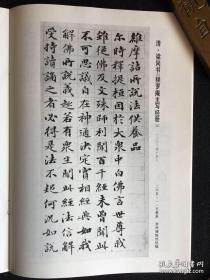 清·梁同书·频罗庵主写经册
維摩詰所說經法供養品
尔時釋提桓因於大衆中白佛言世尊我
雖從佛及文殊師利聞百千經未曾聞此
不可思議自在神通決定實相經典如我
解佛所說義趣若有衆生聞此經法信解
受持讀誦之者必得是法不疑何況如說